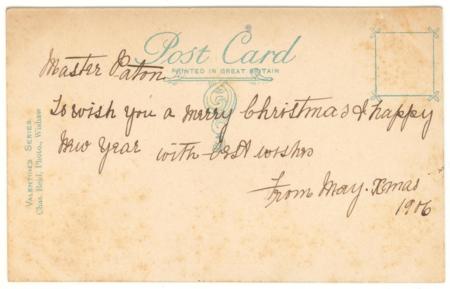 Post Card
PRINTED IN GREAT BRITAIN
Master Paton
To wish you a merry Christmas & happy
New Year with best wishes
From May. Xmas
1906
VALENTINES SERIES.
Chas. Reid, Photo., Wishaw